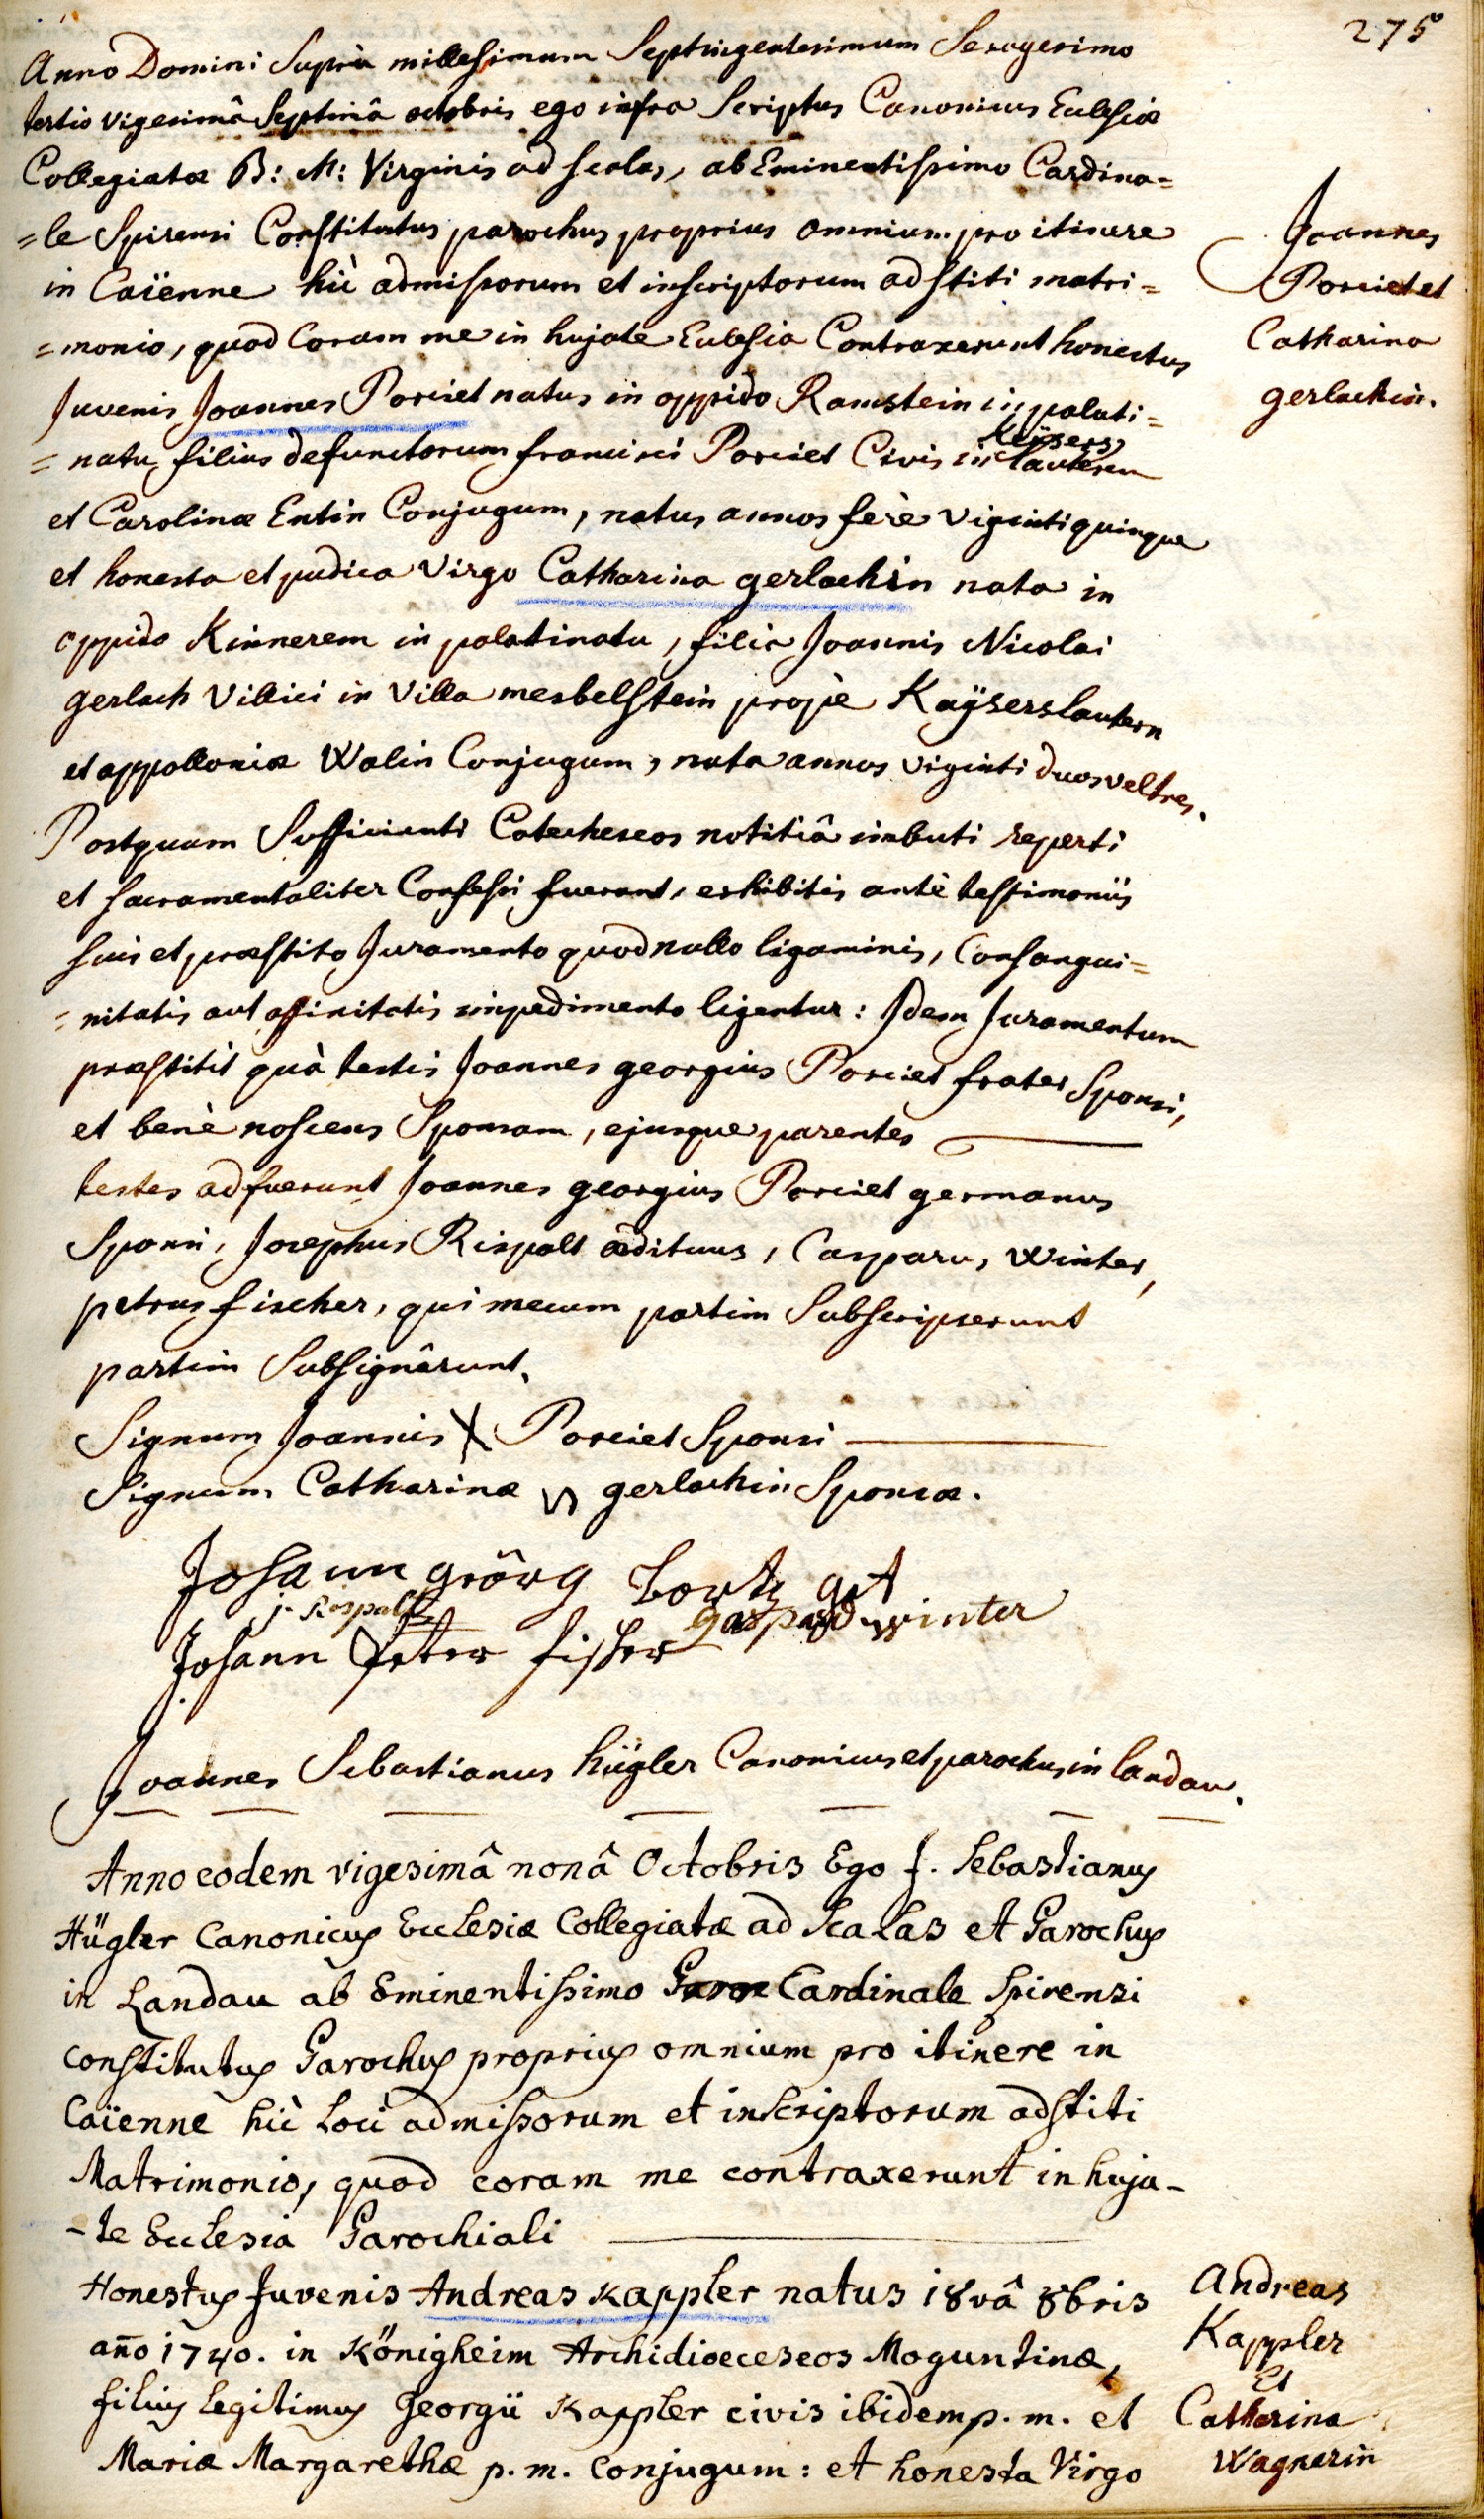 275
Anno Domini Suprà millesimum Septingentesimum Sexagesimo
tertio vigesimâ Septimâ octobris ego infra Scriptus Canonicus Ecclesiæ
Collegiatæ B: M: Virginis ad scalas, ab Eminentissimo Cardina=
=le Spirensi Constitutus parochus proprius omnium pro itinere
in Caïenne hic admissorum et inscriptorum adstiti matri=
=monio, quod Coram me in hujate Ecclesia Contraxerunt honestus
Juvenis Joannes Porciet natus in oppido Ramstein in palati=
=natu, filius defunctorum francisci Porciet Civis in Keysers
lauteren
et Carolinæ Entin Conjugum, natus annos ferè viginti quinque
et honesta et pudica virgo Catharina gerlachin nata in
oppido Kinnerem in palatinatu, filia Joannis Nicolai
gerlach villici in villa merbelstein propè Kaÿserslautern
et appolloniæ Walin Conjugum, nata annos viginti duos vel tres.
Postquam Sufficienti Catecheseos notitiâ imbuti reperti
et sacramentaliter Confessi fuerant, exhibitis antè testimoniis
suis et præstito Juramento quod nullo ligaminis, Consangui=
=nitatis aut affinitatis impedimento ligentur: Idem Juramentum
præstitit quà testis Joannes georgius Porciet frater Sponsi,
et benè noscens Sponsam, ejusque parentes
testes adfuerunt Joannes georgius Porciet germanus
Sponsi, Josephus Rispalt ædituus, Casparus Winter,
petrus fischer, qui mecum partim Subscripserunt
partim Subsignârunt.
Signum Joannis X Porciet Sponsi
Signum Catharinæ gerlachin Sponsæ.
Johann Görg
j. Rispalt
gaspard winter
Johann Peter fischer
Joannes Sebastianus hügler Canonicus et parochus in landau.
Joannes
Porciet et
Catharina
gerlachin.
Anno eodem vigesimâ nonâ Octobris Ego J. Sebastianus
Hügler Canonicus Ecclesiæ Collegiatæ ad Scalas et Parochus
in Landau ab Eminentissimo Cardinale Spirensi
constitutus Parochus proprius omnium pro itinere in
Caïenne hic Loci admissorum et inscriptorum adstiti
Matrimonio, quod coram me contraxerunt in huja-
-te Ecclesia Parochiali
Honestus Juvenis Andreas Kappler natus 18vâ 8bris
año 1740. in Königheim Archidioeceseos Moguntinæ,
filius legitimus Georgii Kappler civis ibidem p. m. et
Mariæ Margarethæ p. m. Conjugum: et honesta Virgo
Andreas
Kappler
Et
Catharina
Wagnerin